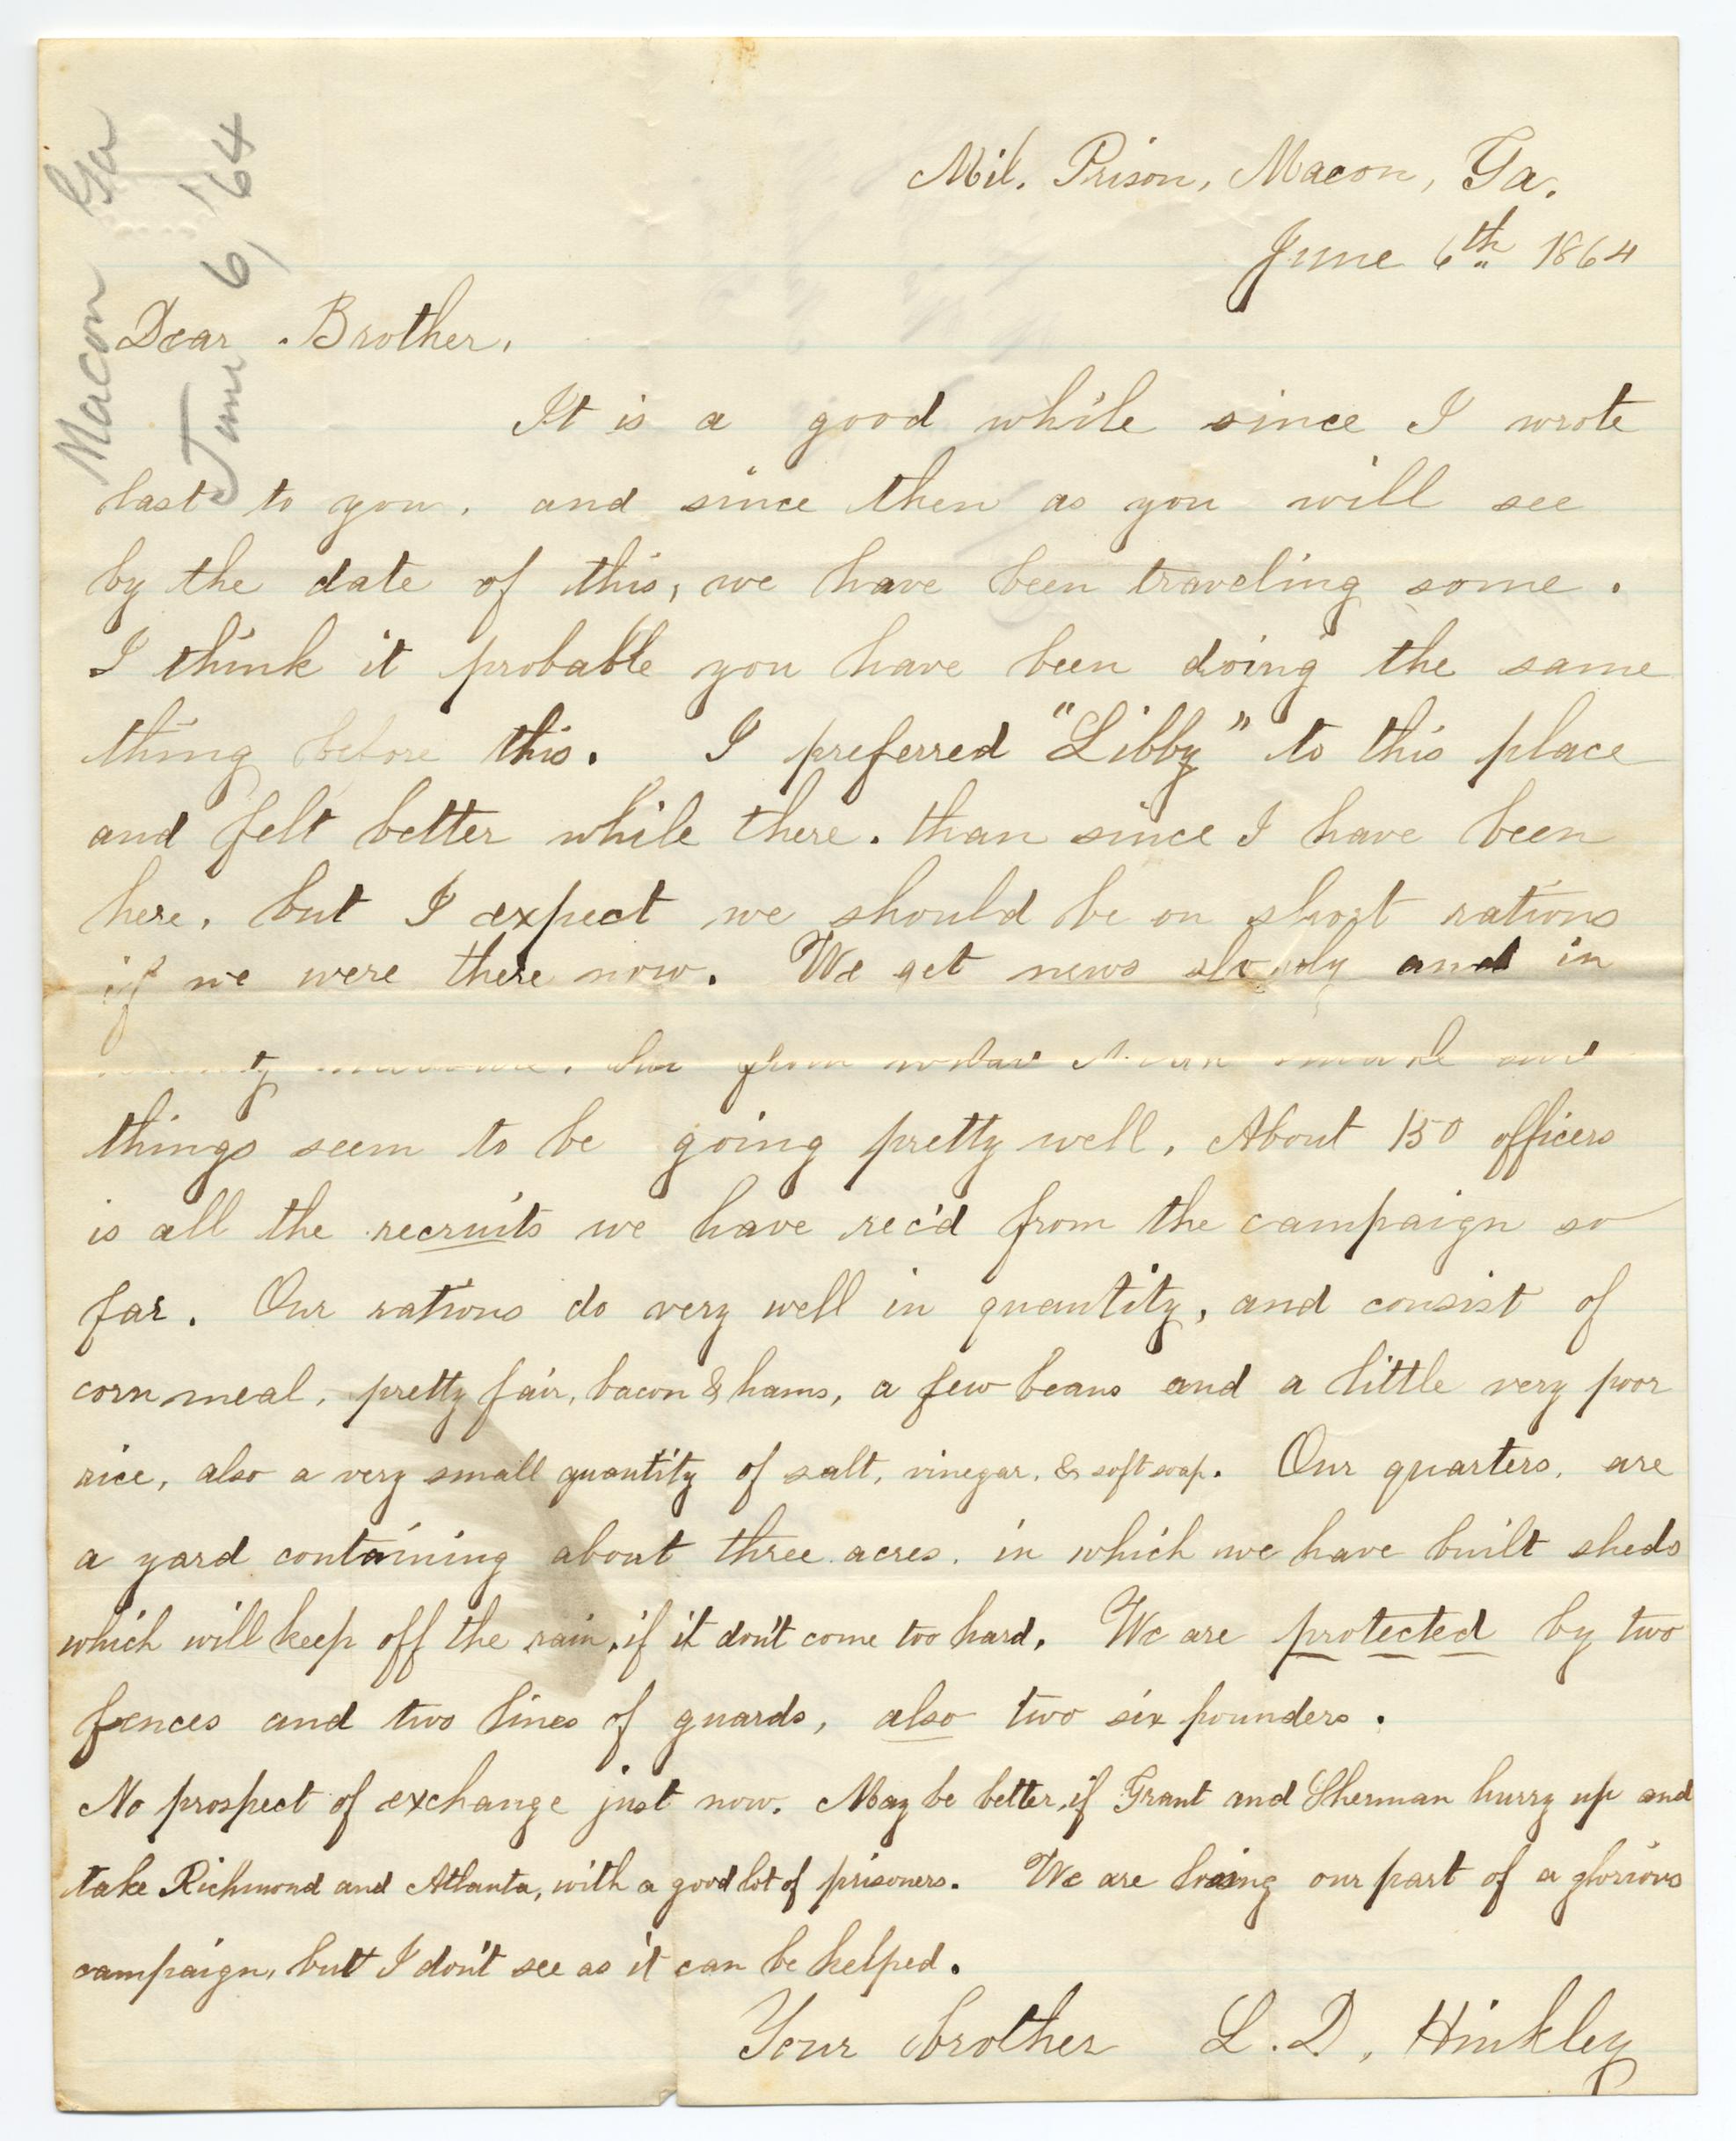 Macon Ga
June 6, '64
Mil. Prison, Macon, Ga.
June 6th 1864
Dear Brother,
It is a good while since I wrote
last to you, and since then as you will see
by the date of this, we have been traveling some.
I think it probable you have been doing the same
thing before this. I preferred "Libby" to this place
and felt better while there. than since I have been
here, but I expect we should be on short rations
if we were there now. We get news slowly and in
but from what I can
things seem to be going pretty well. About 150 officers
is all the recruits we have rec'd from the campaign so
far. Our rations do very well in quantity, and consist of
corn meal, pretty fair, bacon & hams, a few beans and a little very poor
rice, also a very small quantity of salt, vinegar, & soft soap. Our quarters, are
a yard containing about three acres, in which we have built sheds
which will keep off the rain, if it don't come too hard. We are protected by two
fences and two lines of guards, also two six pounders.
No prospect of exchange just now. May be better, if Grant and Sherman hurry up and
take Richmond and Atlanta, with a good lot of prisoners. We are losing our part of a glorious
campaign, but I don't see as it can be helped.
Your brother L. D. Hinkley